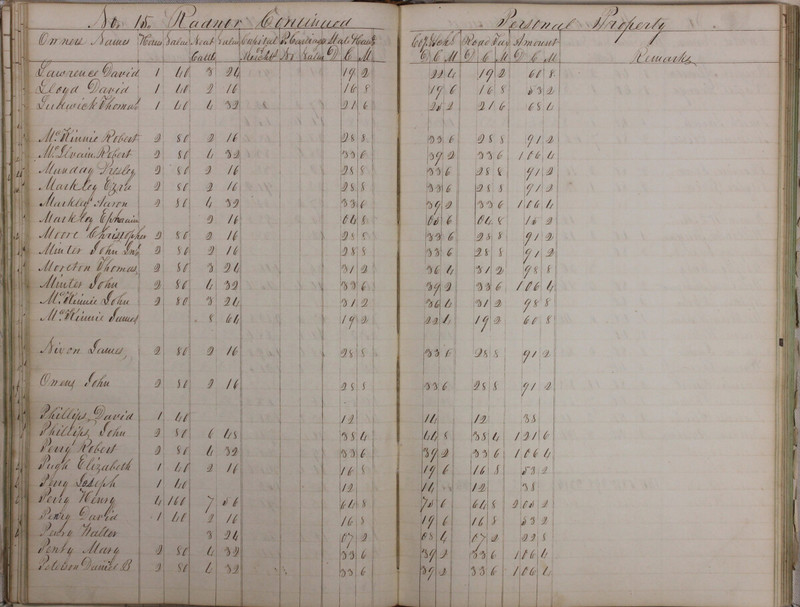 No. 15. Radnor Continued Personal Property
Owners Names Horses Value Neat Cattle Value State & County D C M Sch¹ D C M Road Tax D C M Amount D C M Remarks
Lawrence David 1 40 3 24 19 2 22 4 19 2 60 8
Lloyd David 1 40 2 16 16 8 19 6 16 8 53 2
Thomas 1 40 4 32 21 6 25 2 21 6 68 4
McKinnie Robert 2 80 2 16 28 8 33 6 28 8 91 2
McIlvain Robert 2 80 4 32 33 6 39 2 33 6 1 06 4
Munday Presley 2 80 2 16 28 8 33 6 28 8 91 2
Markley Ezra 2 80 2 16 28 8 33 6 28 8 91 2
Markley Aaron 2 80 4 32 33 6 39 2 33 6 1 06 4
Markley Ephraim 2 16 04 8 05 6 04 8 15 2
Moore Christopher 2 80 2 16 28 8 33 6 28 8 91 2
Minter John 2 80 2 16 28 8 33 6 28 8 91 2
Moreton Thomas 2 80 3 24 31 2 36 4 31 2 98 8
Minter John 2 80 4 32 33 6 39 2 33 6 1 06 4
McKinnie John 2 80 3 24 31 2 36 4 31 2 98 8
McKinnie James 8 64 19 2 22 4 19 2 60 8
Nixon James 2 80 2 16 28 8 33 6 28 8 91 2
Owens John 2 80 2 16 28 8 33 6 28 8 91 2
Phillips David 1 40 12 14 12 38
Phillips John 2 80 6 48 38 4 44 8 38 4 1 21 6
Perry Robert 2 80 4 32 33 6 39 2 33 6 1 06 4
Pugh Elizabeth 1 40 2 16 16 8 19 6 16 8 53 2
Joseph 1 40 12 14 12 38
Perry Henry 4 160 7 56 64 8 75 6 64 8 2 05 2
David 1 40 2 16 16 8 19 6 16 8 53 2
Walter 3 24 07 2 08 4 07 2 22 8
Mary 2 80 4 32 33 6 39 2 33 6 1 06 4
Daniel B 2 80 4 32 33 6 39 2 33 6 1 06 4